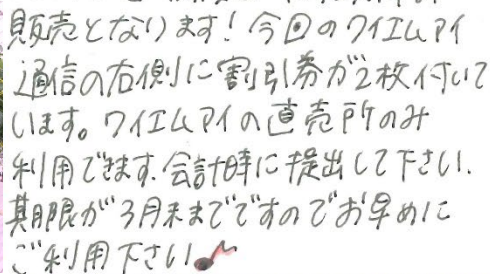 販売となります！今回のワイエムアイ
通信の右側に割引券が2枚付いて
います。ワイエムアイの直売所のみ
利用できます.会計時に提出して下さい.
期限が3月末までですのでお早めに
ご利用下さい♪